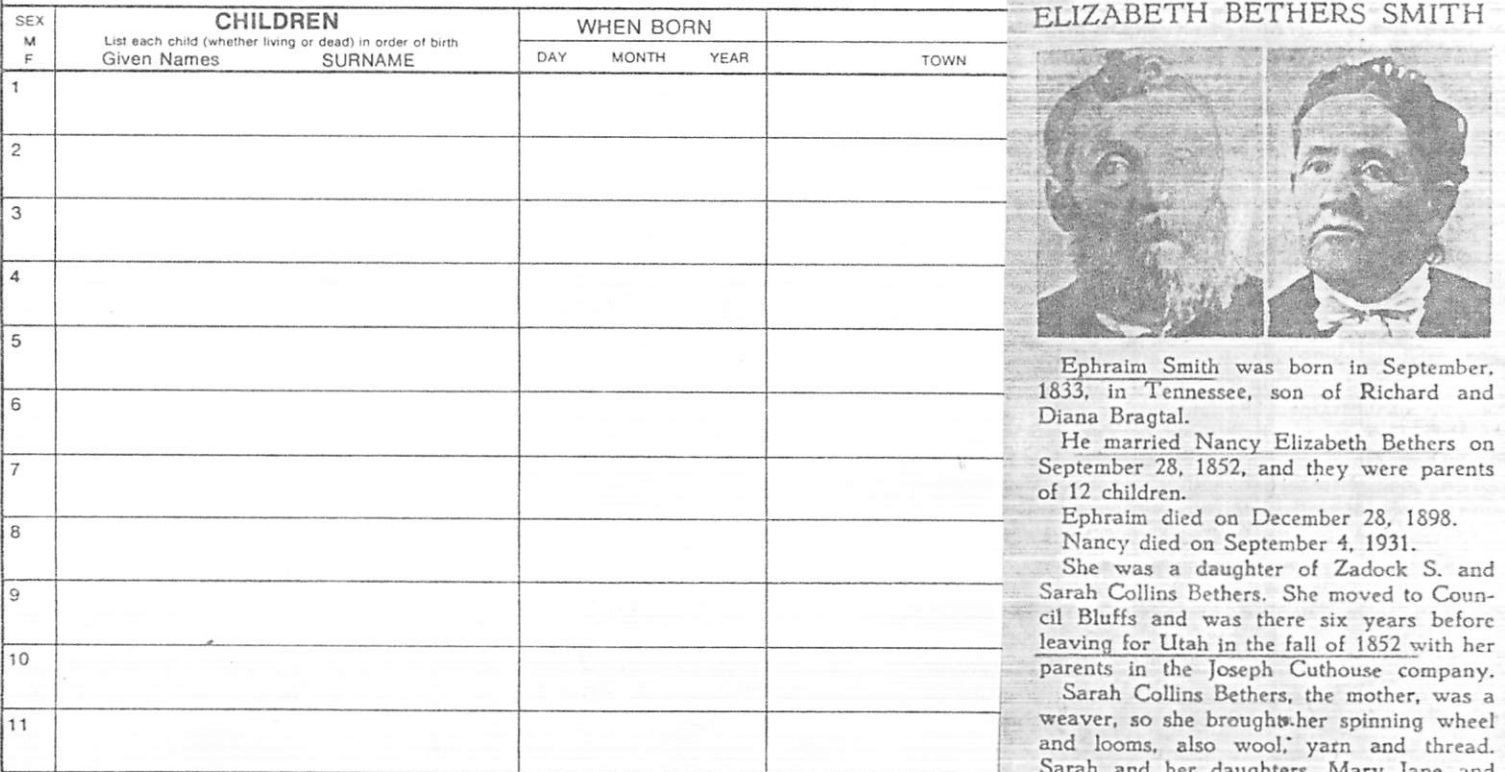 SEX
M
F
CHILDREN
List each child (whether living or dead) in order of birth
Given Names SURNAME
WHEN BORN
DAY MONTH YEAR
TOWN
1
2
3
4
5
6
7
8
9
10
11
ELIZABETH BETHERS SMITH
Ephraim Smith was born in September,
1833, in Tennessee, son of Richard and
Diana Bragtal.
He married Nancy Elizabeth Bethers on
September 28, 1852, and they were parents
of 12 children.
Ephraim died on December 28, 1898.
Nancy died on September 4, 1931.
She was a daughter of Zadock S. and
Sarah Collins Bethers. She moved to Coun-
cil Bluffs and was there six years before
leaving for Utah in the fall of 1852 with her
parents in the Joseph Cuthouse company.
Sarah Collins Bethers, the mother, was a
weaver, so she brought her spinning wheel
and looms, also wool, yarn and thread.
Sarah and her daughters, Mary Jane and